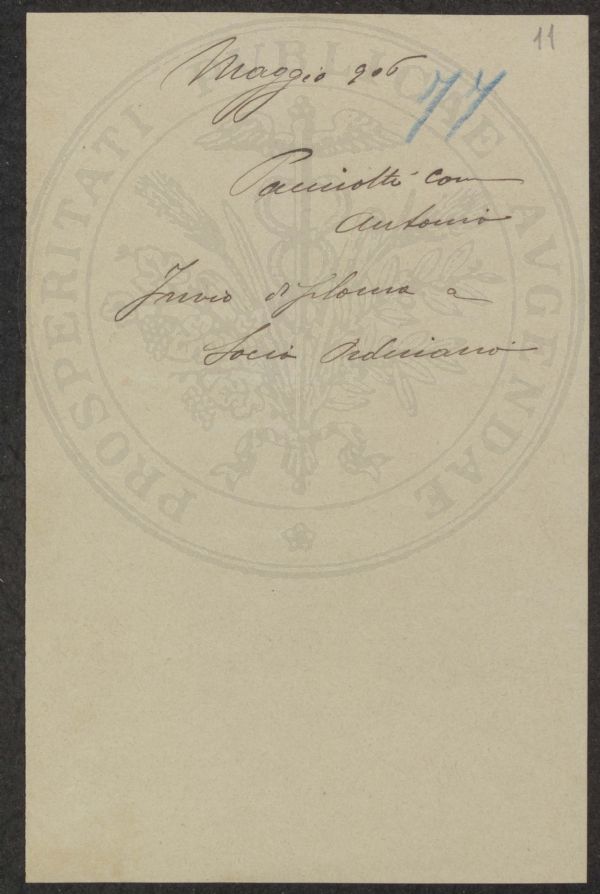 11
Maggio 906
77
Pacinotti com
Antonio
Invio diploma a
Socio Ordinario
PROSPERITATI PUBLICAE AVGENDAE